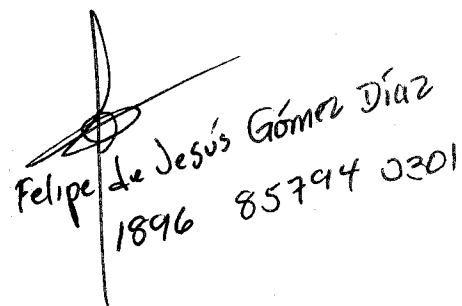 Felipe de Jesús Gómez Díaz
1896 85794 0301